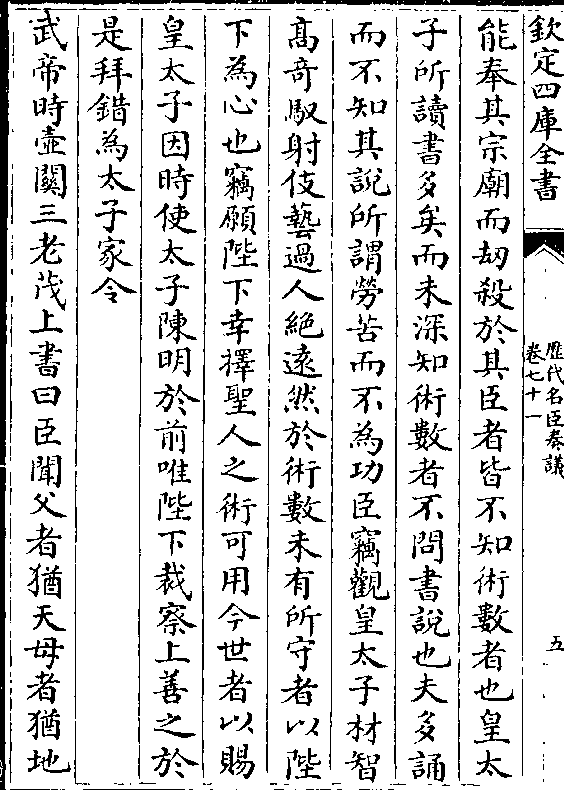 欽定四庫全書
歴代名臣奏議
卷七十一
五
能奉其宗廟而刧殺於其臣者皆不知術數者也皇太
子所讀書多矣而未深知術數者不問書說也夫多誦
而不知其說所謂勞苦而不為功臣竊觀皇太子材智
髙竒馭射伎藝過人絶逺然於術數未有所守者以陛
下為心也竊願陛下幸擇聖人之術可用今世者以賜
皇太子因時使太子陳明於前唯陛下裁察上善之於
是拜錯為太子家令
武帝時壺關三老茂上書曰臣聞父者猶天母者猶地